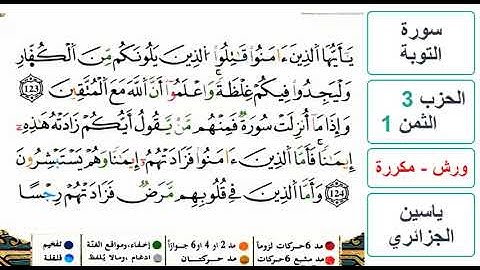 يَٰٓأَيُّهَا اَ۬لذِينَ ءَامَنُواْ قَٰتِلُواْ اُ۬لذِينَ يَلُونَكُم مِّنَ اَ۬لْكُفّ۪ارِ
وَلْيَجِدُواْ فِيكُمْ غِلْظَةٗۖ وَاعْلَمُوٓاْ أَنَّ اَ۬للَّهَ مَعَ اَ۬لْمُتَّقِينَۖ 123
وَإِذَا مَآ أُنزِلَتْ سُورَةٞ فَمِنْهُم مَّنْ يَّقُولُ أَيُّكُمْ زَادَتْهُ هَٰذِهِۦٓ
إِيمَٰناٗۖ فَأَمَّا اَ۬لذِينَ ءَامَنُواْ فَزَادَتْهُمُۥٓ إِيمَٰناٗ وَهُمْ يَسْتَبْشِرُونَۖ
124 وَأَمَّا اَ۬لذِينَ فِي قُلُوبِهِم مَّرَضٞ فَزَادَتْهُمْ رِجْساً
سورة
التوبة
الحزب 3
الثمن 1
ورش - مكررة
ياسين
الجزائري
مد 6 حركات لزوما مد 2 أو 4 أو 6 جوازاً إخفاء، ومواقع الغنّة تفخيم
مد مشبع 6 حركات مد حركتان إدغام، ومالا يُلفظ قلقلة